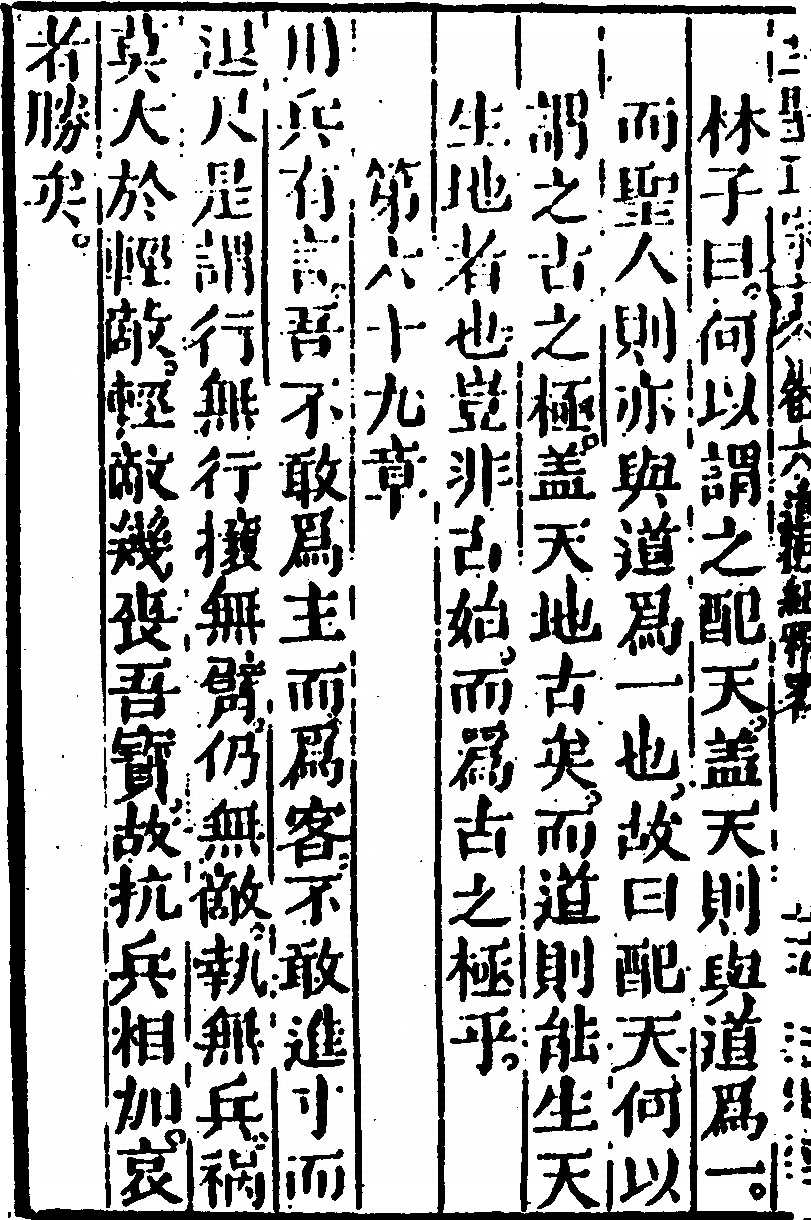 林子曰。何以謂之配天。蓋天則與道爲一。
而聖人則亦與道爲一也。故曰配天何以
謂之古之極。蓋天地古矣。而道則能生天
生地者也豈非古始。而爲古之極乎。
第六十九章
用兵有言。吾不敢爲主而爲客。不敢進寸而
退尺是謂行無行攘無臂。仍無敵。執無兵。禍
莫大於輕敵。輕敵幾喪吾寶。故抗兵相加。哀
者勝矣。